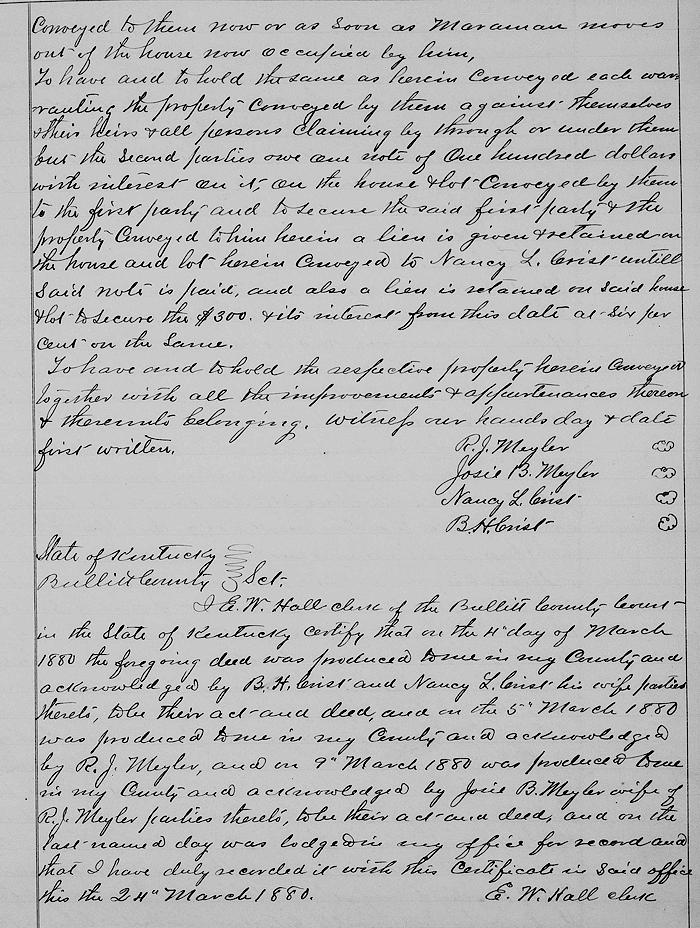 Conveyed to them now or as soon as Maraman moves
out of the house now occupied by him,
To have and to hold the same as herein Conveyed each war
ranting the property Conveyed by them against themselves
& their heirs & all persons Claiming by through or under them
but the second parties owe one note of One hundred dollars
with interest on it, on the house & lot Conveyed by them
to the first party and to secure the said first party & the
property Conveyed to him herein a lien is given & retained on
the house and lot herein Conveyed to Nancy L. Crist untill
said note is paid, and also a lien is retained on said house
& lot to secure the $300. & its interest from this date at six per
cent on the same.
To have and to hold the respective property herein Conveyed
together with all the improvements & appurtenances thereon
& thereunto belonging. Witness our hands day & date
first written.
R. J. Meyler
Josie B. Meyler
Nancy L. Crist
B. H. Crist
State of Kentucky
Bullitt County Sct.
I E. W. Hall clerk of the Bullitt County Court
in the State of Kentucky certify that on the 4" day of March
1880 the foregoing deed was produced to me in my County and
acknowledged by B. H. Crist and Nancy L. Crist his wife parties
thereto, to be their act and deed, and on the 5" March 1880
was produced to me in my County and acknowledged
by R. J. Meyler, and on 9" March 1880 was produced to me
in my County and acknowledged by Josie B. Meyler wife of
R. J. Meyler parties thereto, to be their act and deed, and on the
last named day was lodged in my office for record and
that I have duly recorded it with this Certificate in said office
this the 24" March 1880.
E. W. Hall clerk